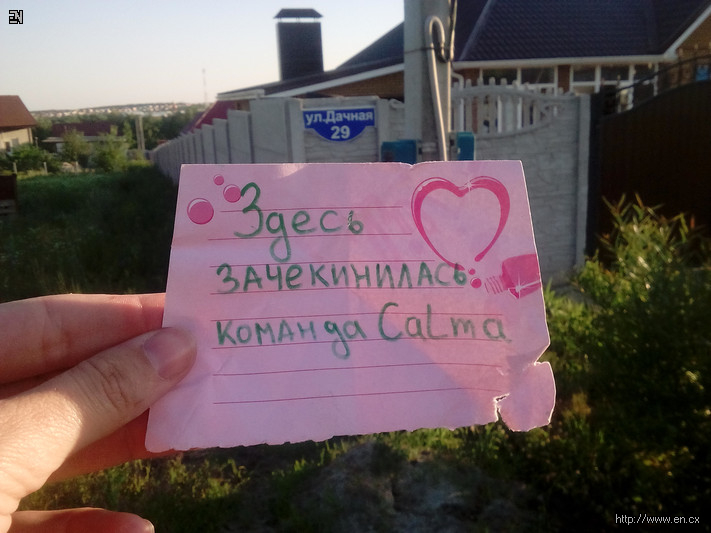 EN
ул.Дачная
29
Здесь
зачекинилась
команда CaLma
http://www.en.cx